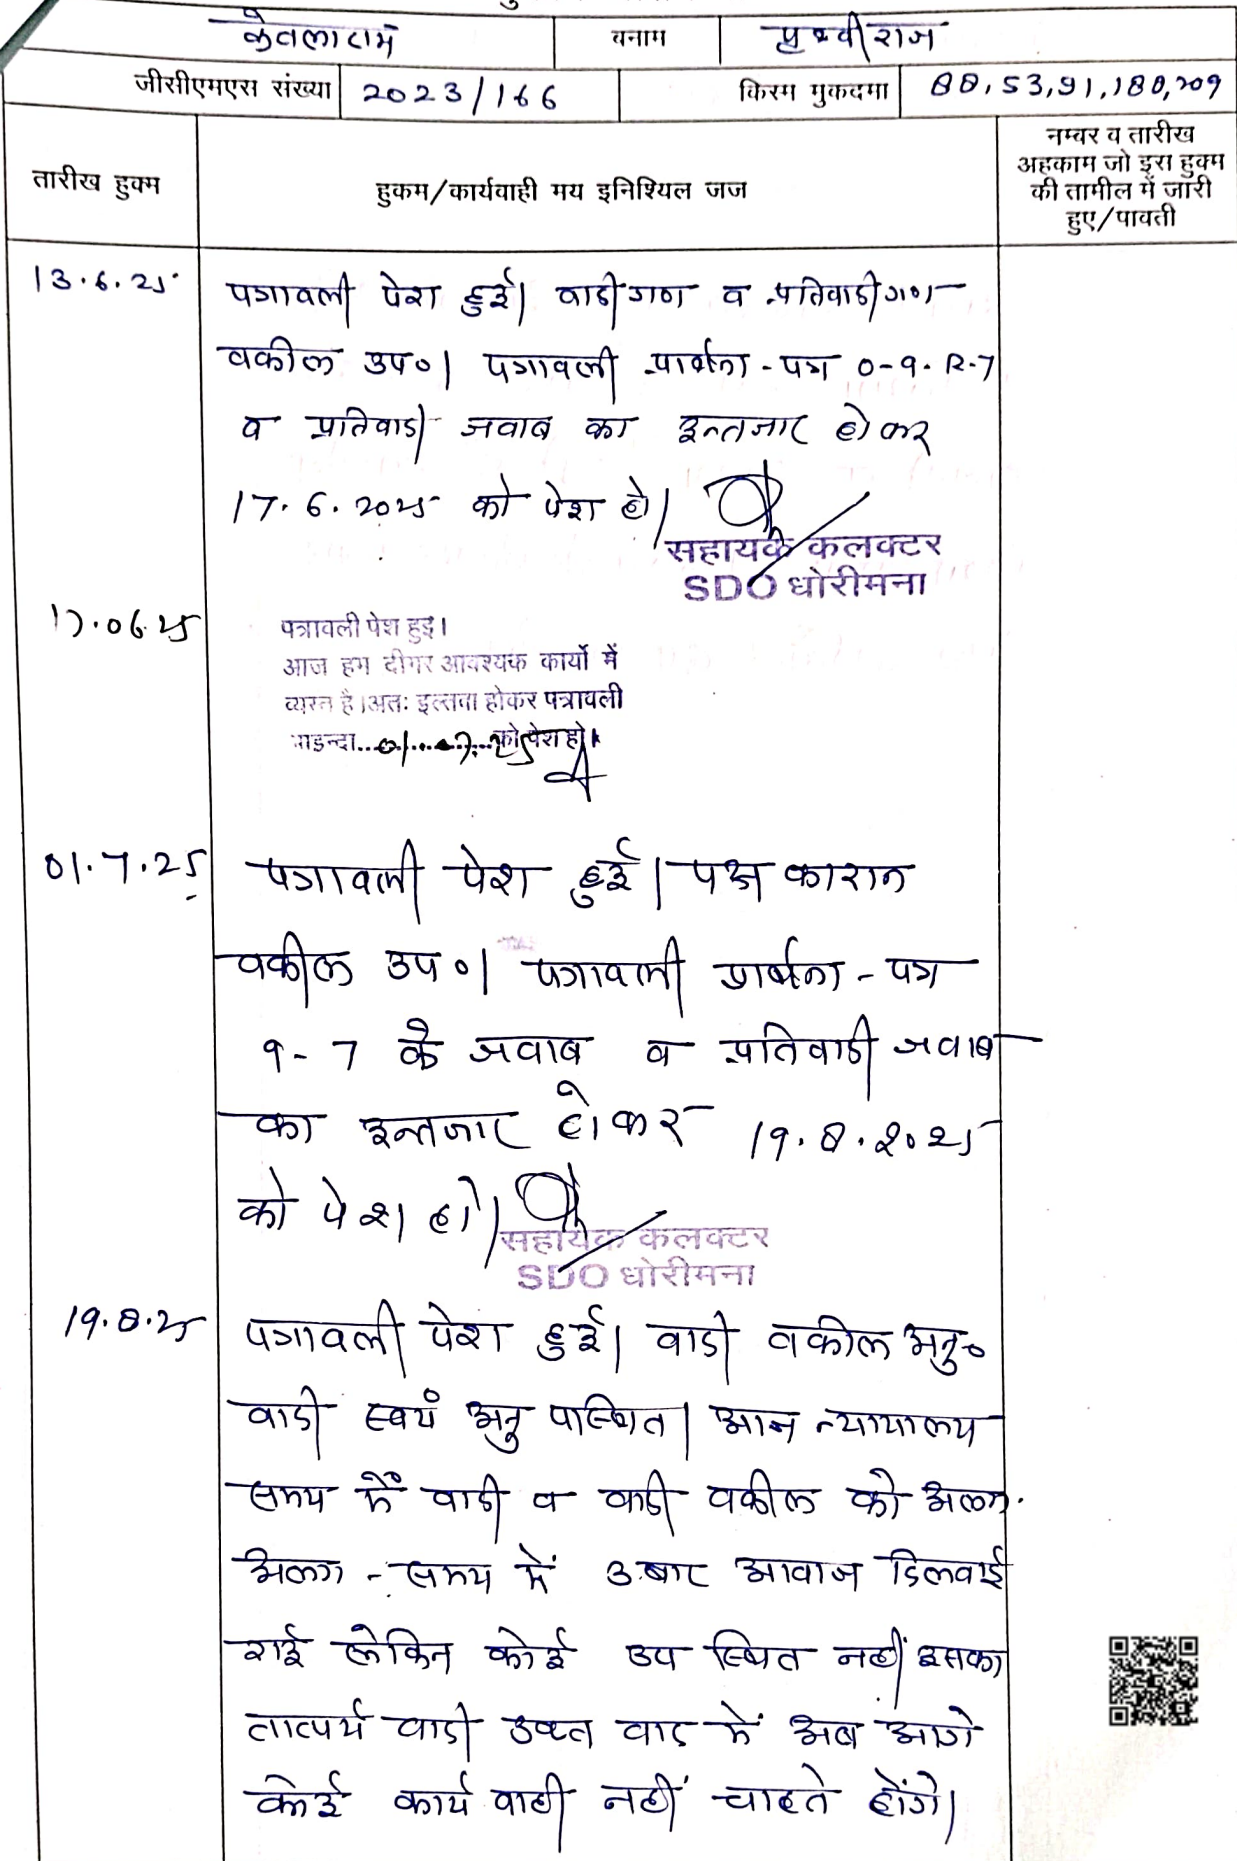 केवलाराम बनाम पृथ्वीराज
जीसीएमएस संख्या 2023/166 किस्म मुकदमा 88,53,91,188,209
तारीख हुक्म
हुकम/कार्यवाही मय इनिश्यिल जज
नम्वर व तारीख
अहकाम जो इस हुक्म
की तामील में जारी
हुए/पावती
13.6.25 पत्रावली पेश हुई। वादीगण व प्रतिवादीगण
वकील उप०। पत्रावली प्रार्थना-पत्र 0-9.R-7
व प्रतिवादी जवाब का इन्तजार होकर
17.6.2025 को पेश हो।
सहायक कलक्टर
SDO धोरीमना
17.06.25 पत्रावली पेश हुइ।
आज हम दीगर आवश्यक कार्यो में
व्यस्त है।अतः इल्तवा होकर पत्रावली
आइन्दा...01...07...25 को पेश हो।
01.7.25 पत्रावली पेश हुई। पक्षकारान
वकील उप०। पत्रावली प्रार्थना-पत्र
9-7 के जवाब व प्रतिवादी जवाब
का इन्तजार होकर 19.8.2025
को पेश हो।
सहायक कलक्टर
SDO धोरीमना
19.8.25 पत्रावली पेश हुई। वादी वकील अनु०
वादी स्वयं अनुपास्थित। आज न्यायालय
समय में वादी व वादी वकील को अलग-
अलग-समय में 3 बार आवाज दिलवाई
गई लेकिन कोई उपस्थित नहीं इसका
तात्पर्य वादी उक्त वाद में अब आगे
कोई कार्यवाही नहीं चाहते होंगे।